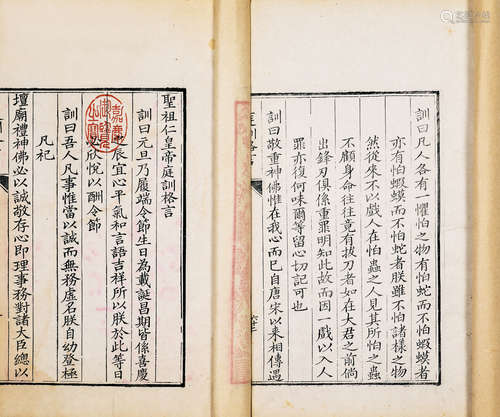 訓曰凡人各有一懼怕之物有怕蛇而不怕蝦蟆者
亦有怕蝦蟆而不怕蛇者朕雖不怕諸樣之物
然從來不以戲人在怕蟲之人見其所怕之蟲
不顧身命往往竟有拔刀者如在大君之前倘
出鋒刃俱係重罪明知此故而因一戲以入人
罪亦復何味爾等留心切記可也
訓曰敬重神佛惟在我心而已自唐宋以來相傳遇
訓格言
聖祖仁皇帝庭訓格言
訓曰元旦乃履端令節生日為載誕昌期皆係喜慶
之辰宜心平氣和言語吉祥所以朕於此等日
必欣悅以酬令節
訓曰吾人凡事惟當以誠而無務虛名朕自幼登極
凡祀
壇廟禮神佛必以誠敬存心即理事務對諸大臣總以
嘉慶